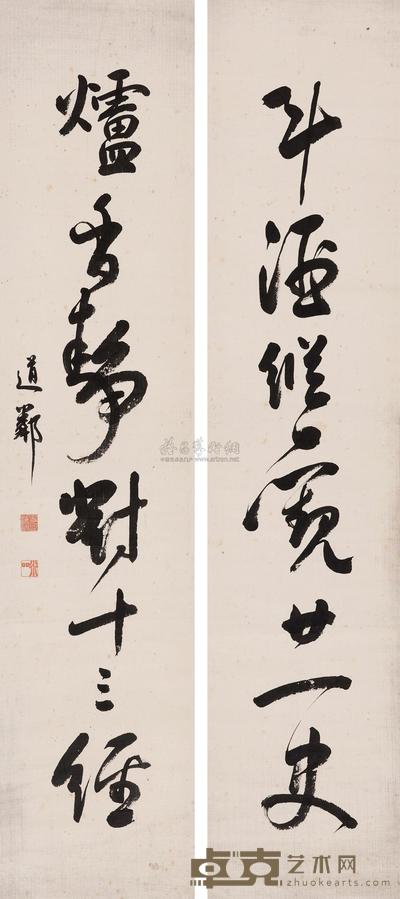 斗酒縱觀廿一史
爐香靜對十三經
道鄰
卓克艺术网
zhuokearts.com